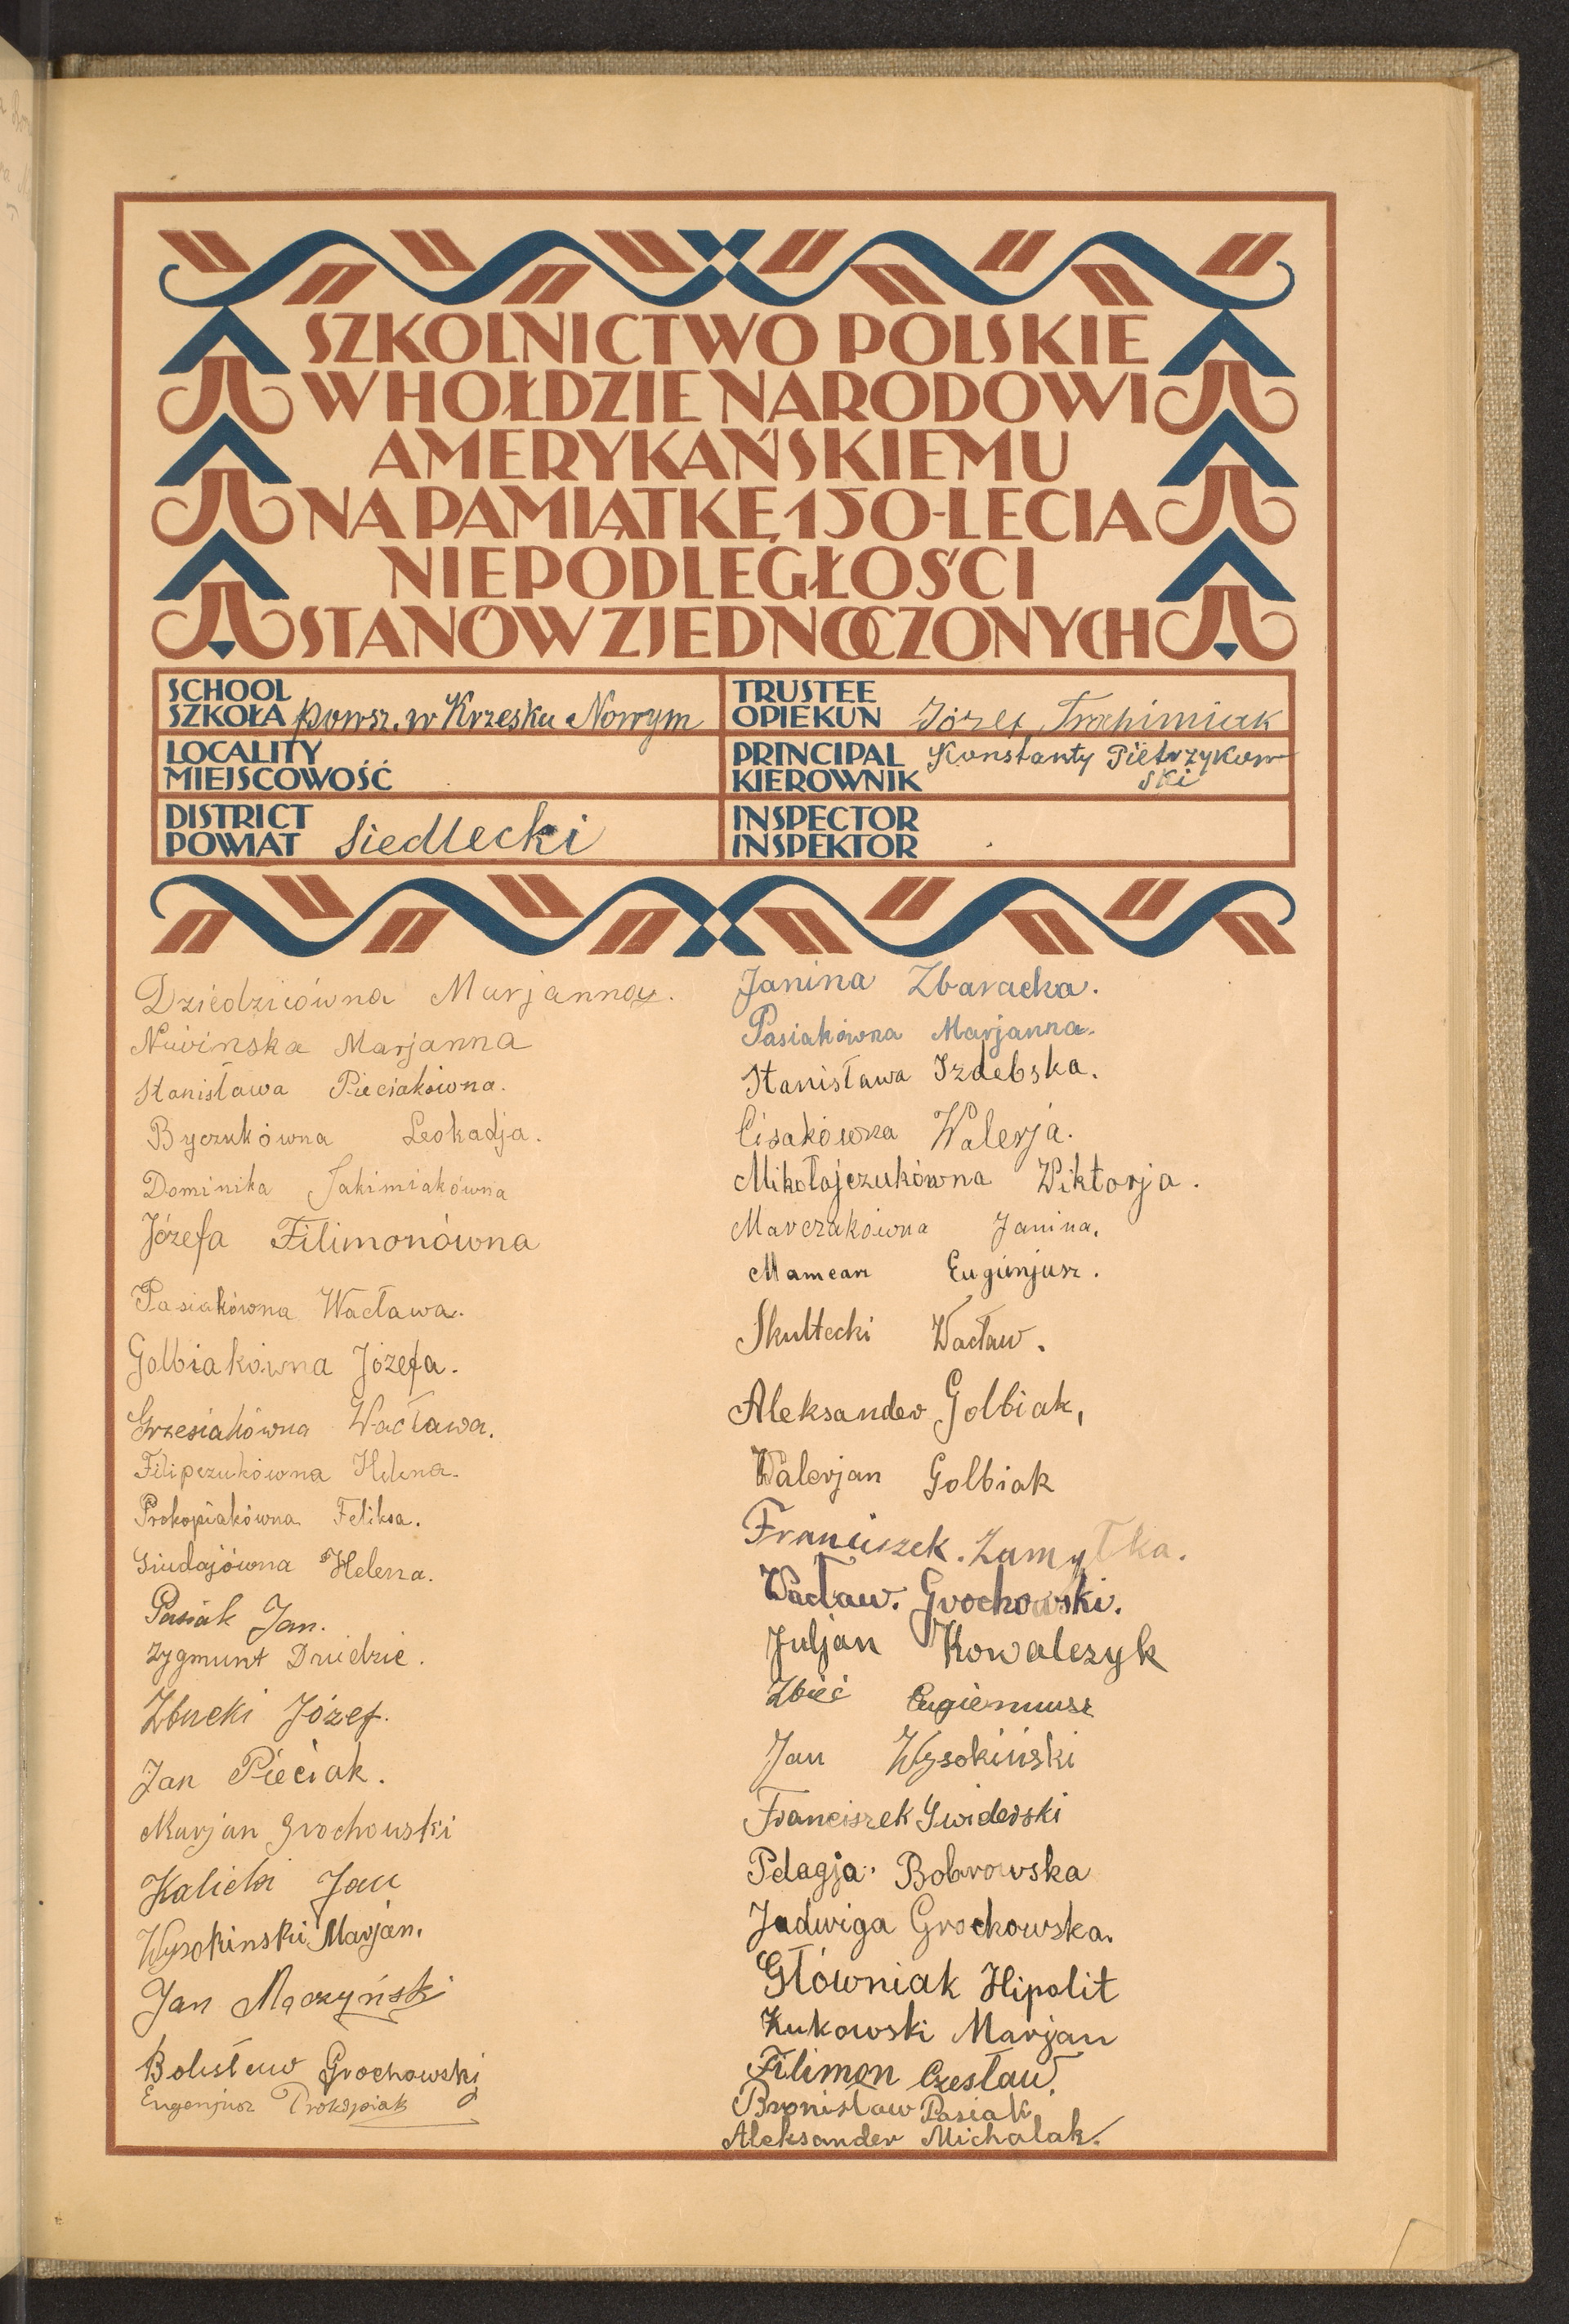 SZKOLNICTWO POLSKIE
W HOŁDZIE NARODOWI
AMERYKAŃSKIEMU
NA PAMIĄTKĘ 150-LECIA
NIEPODLEGŁOŚCI
STANÓW ZJEDNOCZONYCH
SCHOOL
SZKOŁA powsz. w Krzesku Nowym
TRUSTEE
OPIEKUN Józef Trochimiak
LOCALITY
MIEJSCOWOŚĆ
PRINCIPAL Konstanty Pietrzykow
KIEROWNIK ski
DISTRICT
POWIAT Siedlecki
INSPECTOR
INSPEKTOR
Dziedzicówna Marjanna.
Marjanna
Stanisława Pieciakówna.
Byczukówna Leokadja.
Dominika Jakimiakówna
Józefa Filimonówna
Pasiakówna Wacława.
Golbiakówna Józefa.
Grzesiakówna Wacława.
Filipczukówna Helena.
Prokopiakówna Feliksa.
Helena.
Pasiak Jan.
Zygmunt Dziedzic.
Zbucki Józef.
Jan Pieciak.
Marjan Grochowski
Kalicki Jan
Wysokinski Marjan.
Jan Mączyński
Bolesław Grochowski
Eugenjusz Prokopiak
Janina Zbaracka.
Pasiakówna Marjanna.
Stanisława Izdebska.
Cisakówna Walerja.
Mikołajczukówna Wiktorja.
Marczakówna Janina.
Eugienjusz.
Skultecki Wacław.
Aleksander Golbiak,
Walerjan Golbiak
Franciszek. Zamytka.
Wacław. Grochowski.
Juljan Kowalczyk
Zbieć
Jan Wysokiński
Franciszek Swiderski
Pelagja. Bobrowska
Jadwiga Grochowska.
Główniak Hipolit
Żukowski Marjan
Filimon Czesław.
Bronisław Pasiak
Aleksander Michalak.